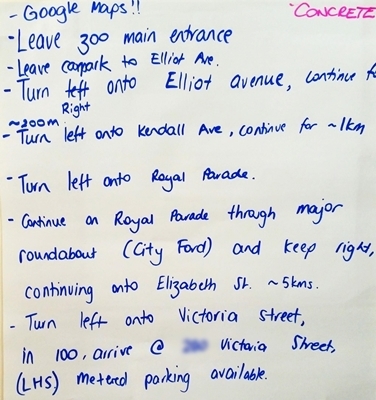 "CONCRETE
- Google Maps!!
- Leave 300 main entrance
- Leave carpark to Elliot Ave.
- Turn left onto Elliot avenue, continue fo
Right
~200m
- Turn left onto Kendall Ave, continue for ~1km
- Turn left onto Royal Parade.
- Continue on Royal Parade through major
roundabout (City Ford) and keep right,
continuing onto Elizabeth St. ~5kms.
- Turn left onto Victoria Street,
in 100, arrive @ Victoria Street,
(LHS) metered parking available.